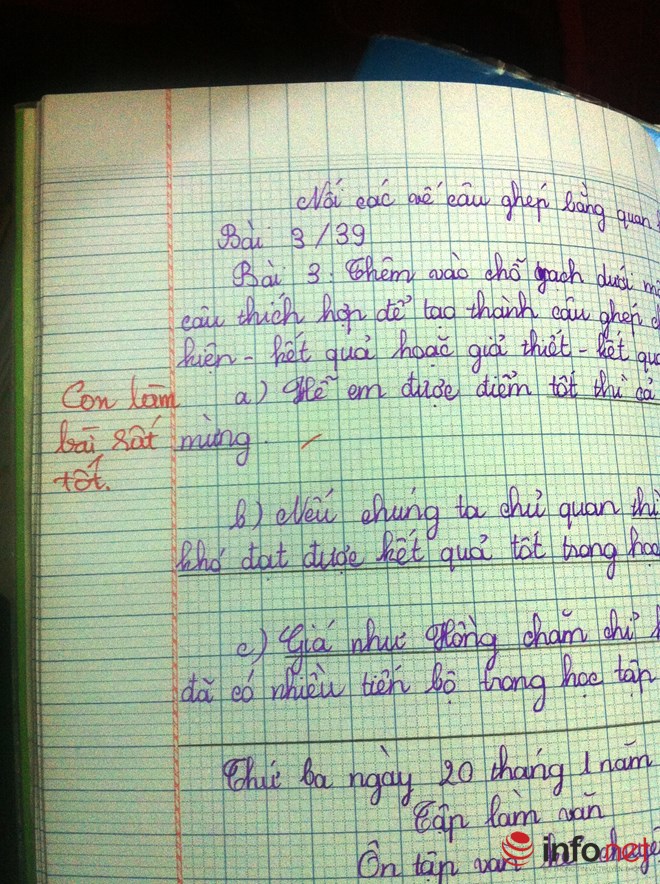 Nối các vế câu ghép bằng quan
Bài 3/39
Bài 3: Thêm vào chỗ gạch dưới
câu thích hợp để tạo thành câu ghép
kiện - kết quả hoặc giả thiết - kết quả
Con làm bài rất tốt.
a) Hễ em được điểm tốt thì cả
mừng.
b) Nếu chúng ta chủ quan thì
khó đạt được kết quả tốt trong học
c) Giá như Hồng chăm chỉ
đã có nhiều tiến bộ trong học tập
Thứ ba ngày 20 tháng 1 năm
Tập làm văn
Ôn tập văn kể chuyện
infonet